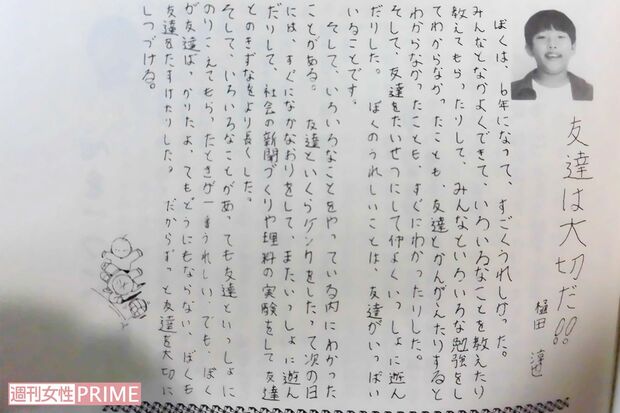 友達は大切だ!!
樋田 淳也
ぼくは、6年になって、すごくうれしかった。
みんなとなかよくできて、いろいろなことを教えたり
教えてもらったりして、みんなといろいろな勉強をし
てわからなかったことも、友達とかんがえたりすると
わからなかったことも、すぐにわかったりした。
そして、友達をたいせつにして仲よくいっしょに遊ん
だりした。ぼくのうれしいことは、友達がいっぱい
いることです。
そして、いろいろなことをやっている内にわかった
ことがある。友達といくらケンカをしたって次の日
には、すぐになかなおりをして、またいっしょに遊ん
だりして、社会の新聞づくりや理科の実験をして友達
とのきずなをより長くした。
そして、いろいろなことがあっても友達といっしょに
のりこえてもらったときが一番うれしい。でも、ぼく
が友達ば、かりたよ、てもどうにもならない、ぼくも
友達をたすけたりした。だからずっと友達を大切に
しつづける。
週刊女性PRIME